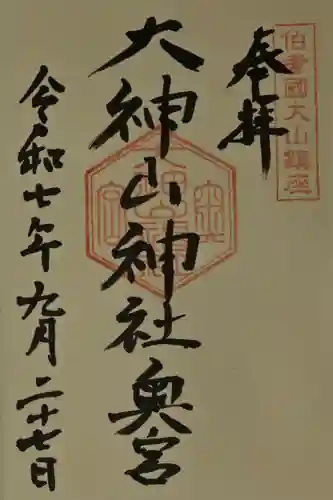 伯耆國大山鎮座
奉拝
大神山神社奥宮
令和七年九月二十七日